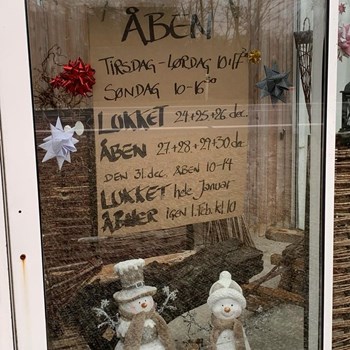 ÅBEN
TIRSDAG-LØRDAG 10-17³⁰
SØNDAG 10-16³⁰
LUKKET 24+25+26 dec.
ÅBEN 27+28+29+30 dec.
DEN 31. dec. ÅBEN 10-14
LUKKET hele Januar
ÅBNER IGEN 1. feb. kl 10